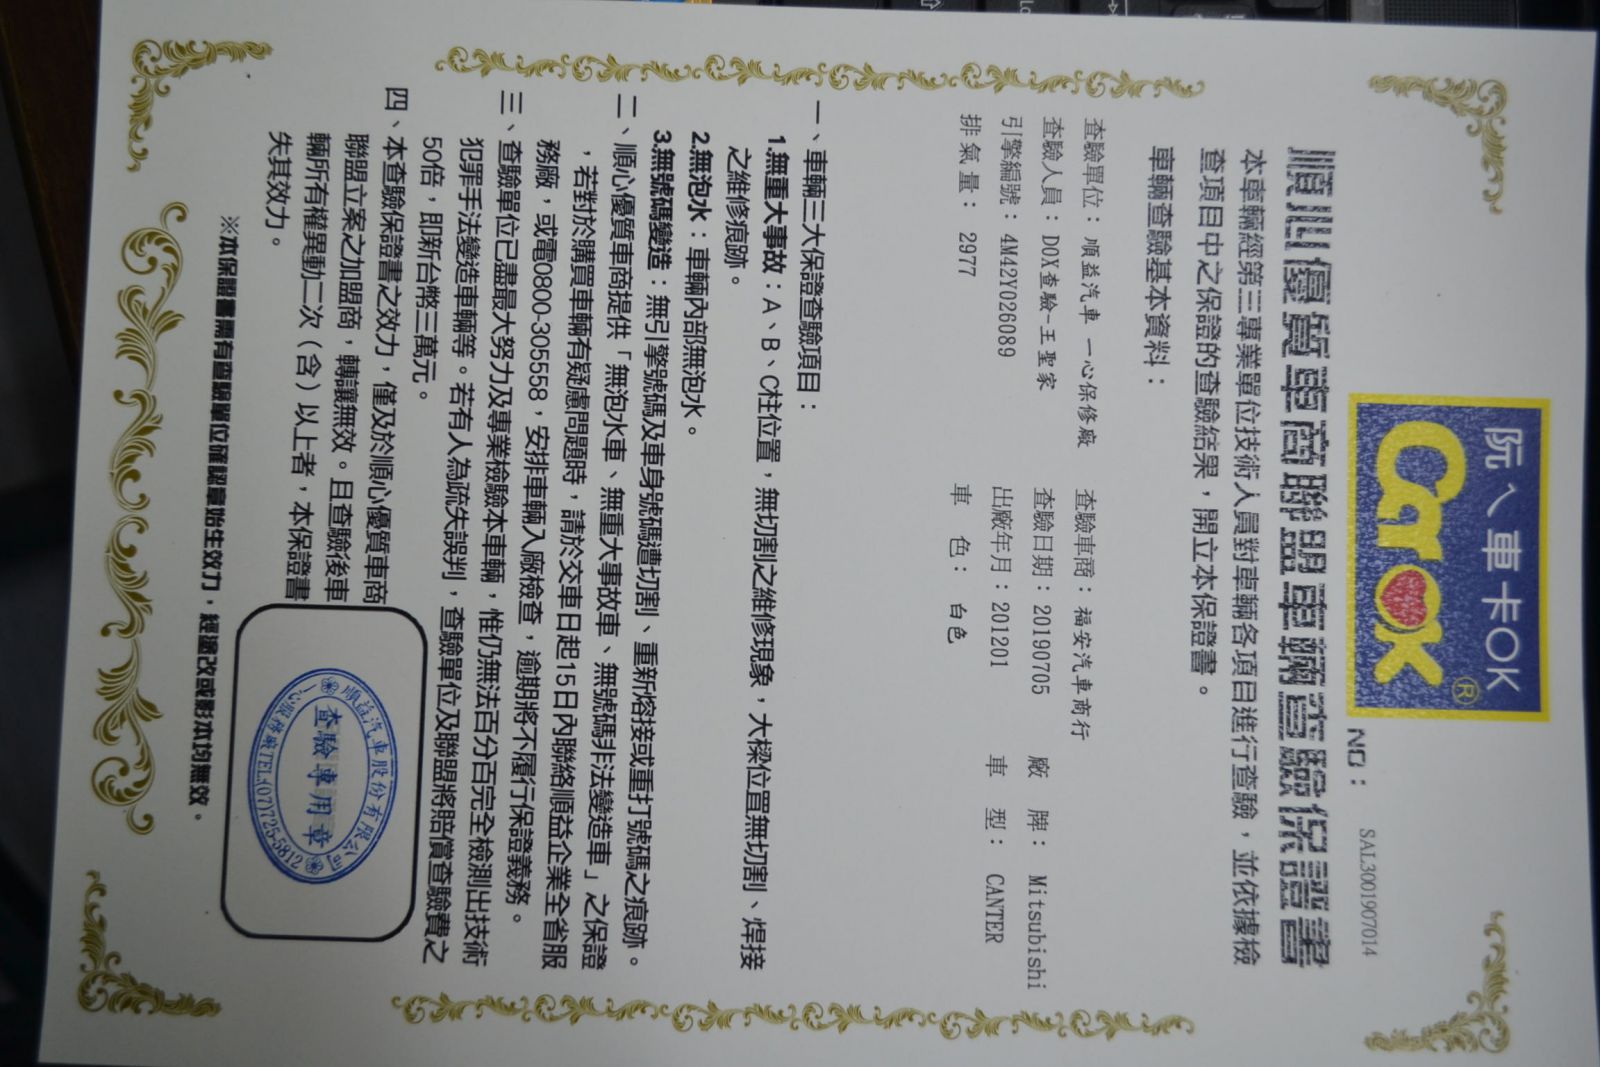 阮ㄟ車卡OK
CarOK®
NO：
SAL3001907014
順心優質車商聯盟車輛查驗保證書
本車輛經第三專業單位技術人員對車輛各項目進行查驗，並依據檢
查項目中之保證的查驗結果，開立本保證書。
車輛查驗基本資料：
查驗單位：順益汽車 一心保修廠 查驗車商：福安汽車商行
查驗人員：DOX查驗-王聖家 查驗日期：20190705 廠 牌： Mitsubishi
引擎編號：4M42Y026089 出廠年月：201201 車 型： CANTER
排 氣 量： 2977 車 色： 白色
一、車輛三大保證查驗項目：
1.無重大事故：A、B、C柱位置，無切割之維修現象，大樑位置無切割、焊接
之維修痕跡。
2.無泡水：車輛內部無泡水。
3.無號碼變造：無引擎號碼及車身號碼遭切割、重新熔接或重打號碼之痕跡。
二、順心優質車商提供「無泡水車、無重大事故車、無號碼非法變造車」之保證
，若對於購買車輛有疑慮問題時，請於交車日起15日內聯絡順益企業全省服
務廠，或電0800-305558，安排車輛入廠檢查，逾期將不履行保證義務。
三、查驗單位已盡最大努力及專業檢驗本車輛，惟仍無法百分百完全檢測出技術
犯罪手法變造車輛等。若有人為疏失誤判，查驗單位及聯盟將賠償查驗費之
50倍，即新台幣三萬元。
四、本查驗保證書之效力，僅及於順心優質車商
聯盟立案之加盟商，轉讓無效。且查驗後車
輛所有權異動二次（含）以上者，本保證書
失其效力。
順益汽車股份有限公司
查驗專用章
一心服務廠TEL:(07)725-5812
※本保證書需有查驗單位確認章始生效力，經塗改或影本均無效。